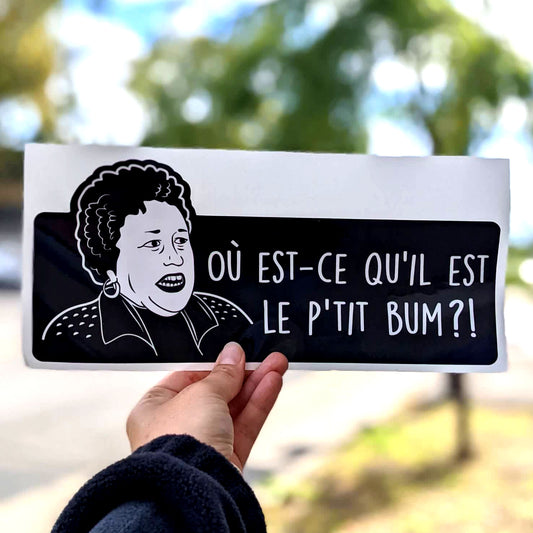 OÙ EST-CE QU'IL EST
LE P'TIT BUM?!